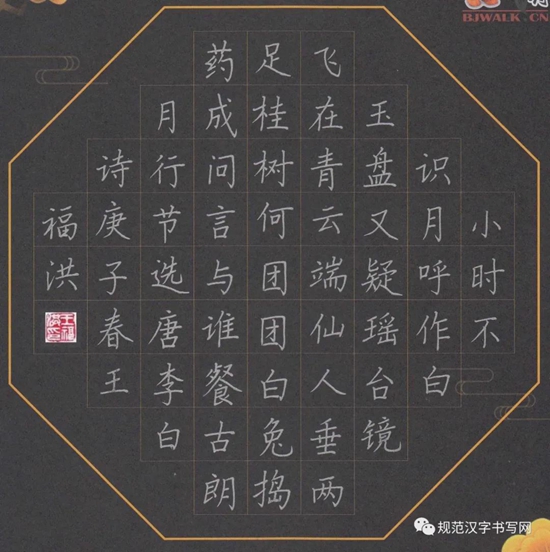 BJWALK.CN
小时不
识月呼作白
玉盘又疑瑶台镜
飞在青云端仙人垂两
足桂树何团团白兔捣
药成问言与谁餐古朗
月行节选唐李白
诗庚子春王
福洪
王福洪印
规范汉字书写网